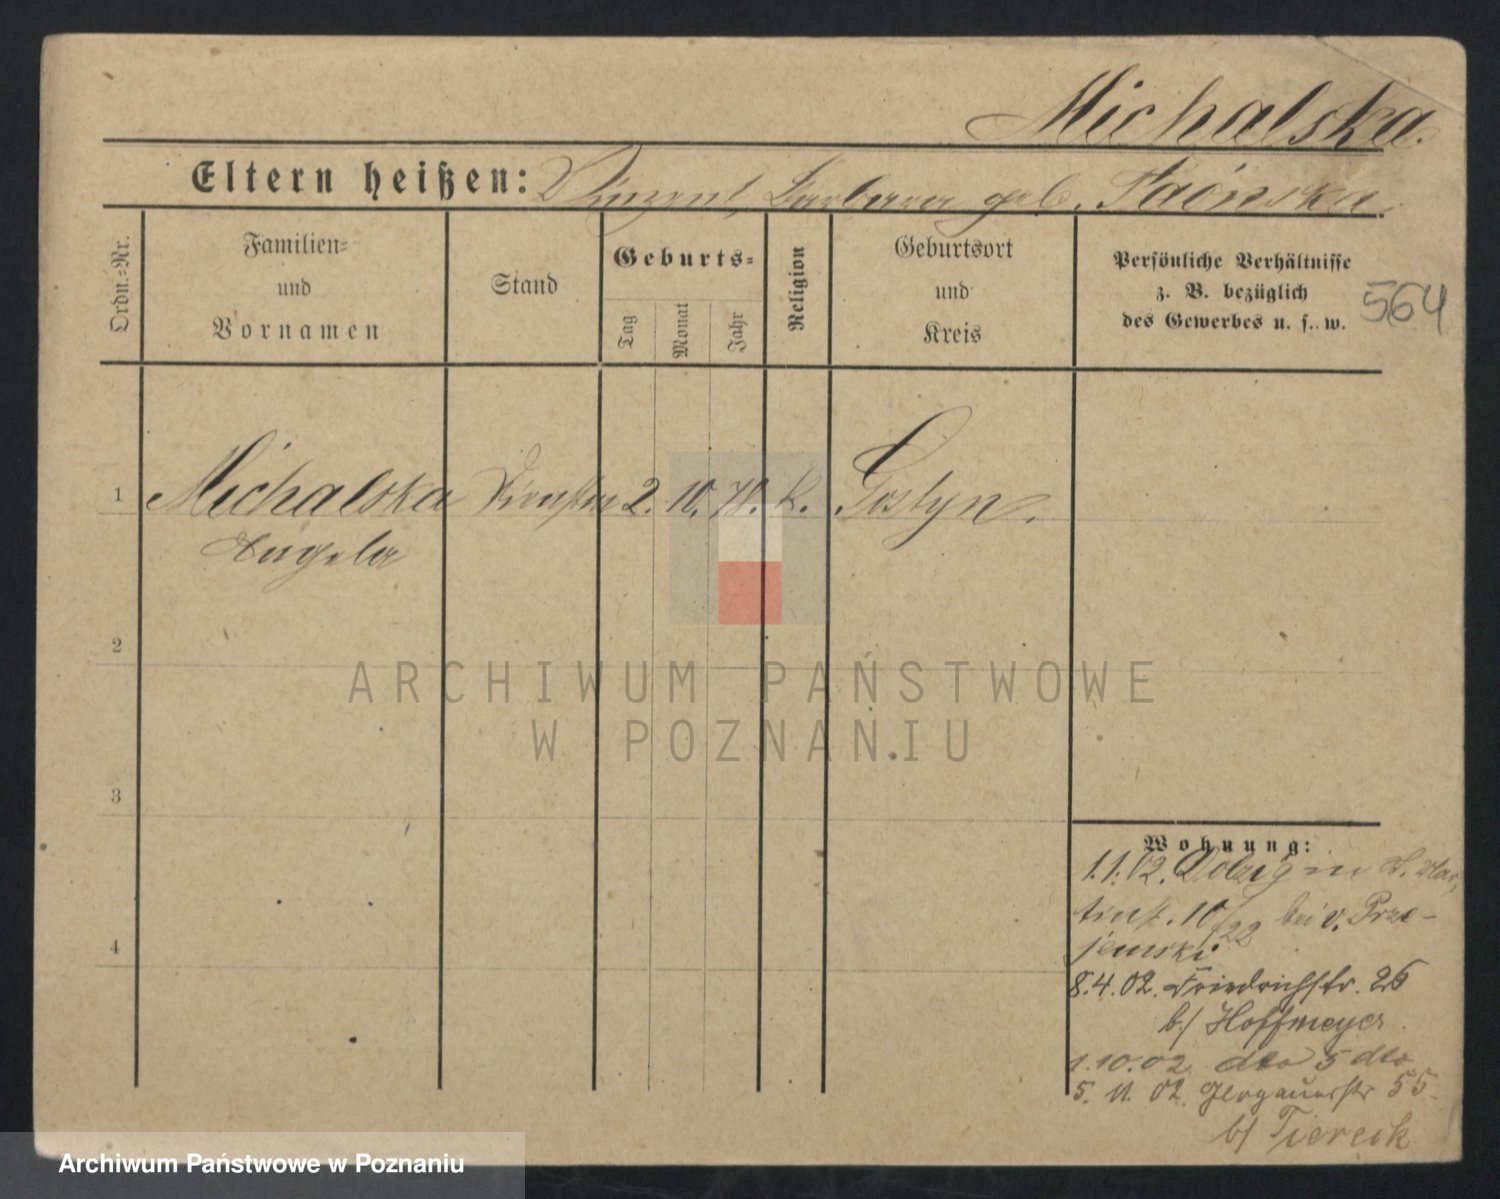 Michalska.
Eltern heißen: Vinzent, Barbara geb.
Ordn.=Nr.
Familien=
und
Vornamen
Stand
Geburts=
Tag
Monat
Jahr
Religion
Geburtsort
und
Kreis
Persönliche Verhältnisse
z. B. bezüglich
des Gewerbes u. s. w.
564
1 Michalska 2. 10. 78. K. Gostyn.
Angela
2
3
4
ARCHIWUM PAŃSTWOWE
W POZNANIU
Wohnung:
1.1.02. Dolzig St. Mar,
tinst. 10/22 bei v. Prze-
jemski.
8.4.02. Friedrichstr. 26
b/ Hoffmeyer
1.10.02 dto 5 dto
5. 11. 02. Glogauerstr 55.
b/
Archiwum Państwowe w Poznaniu